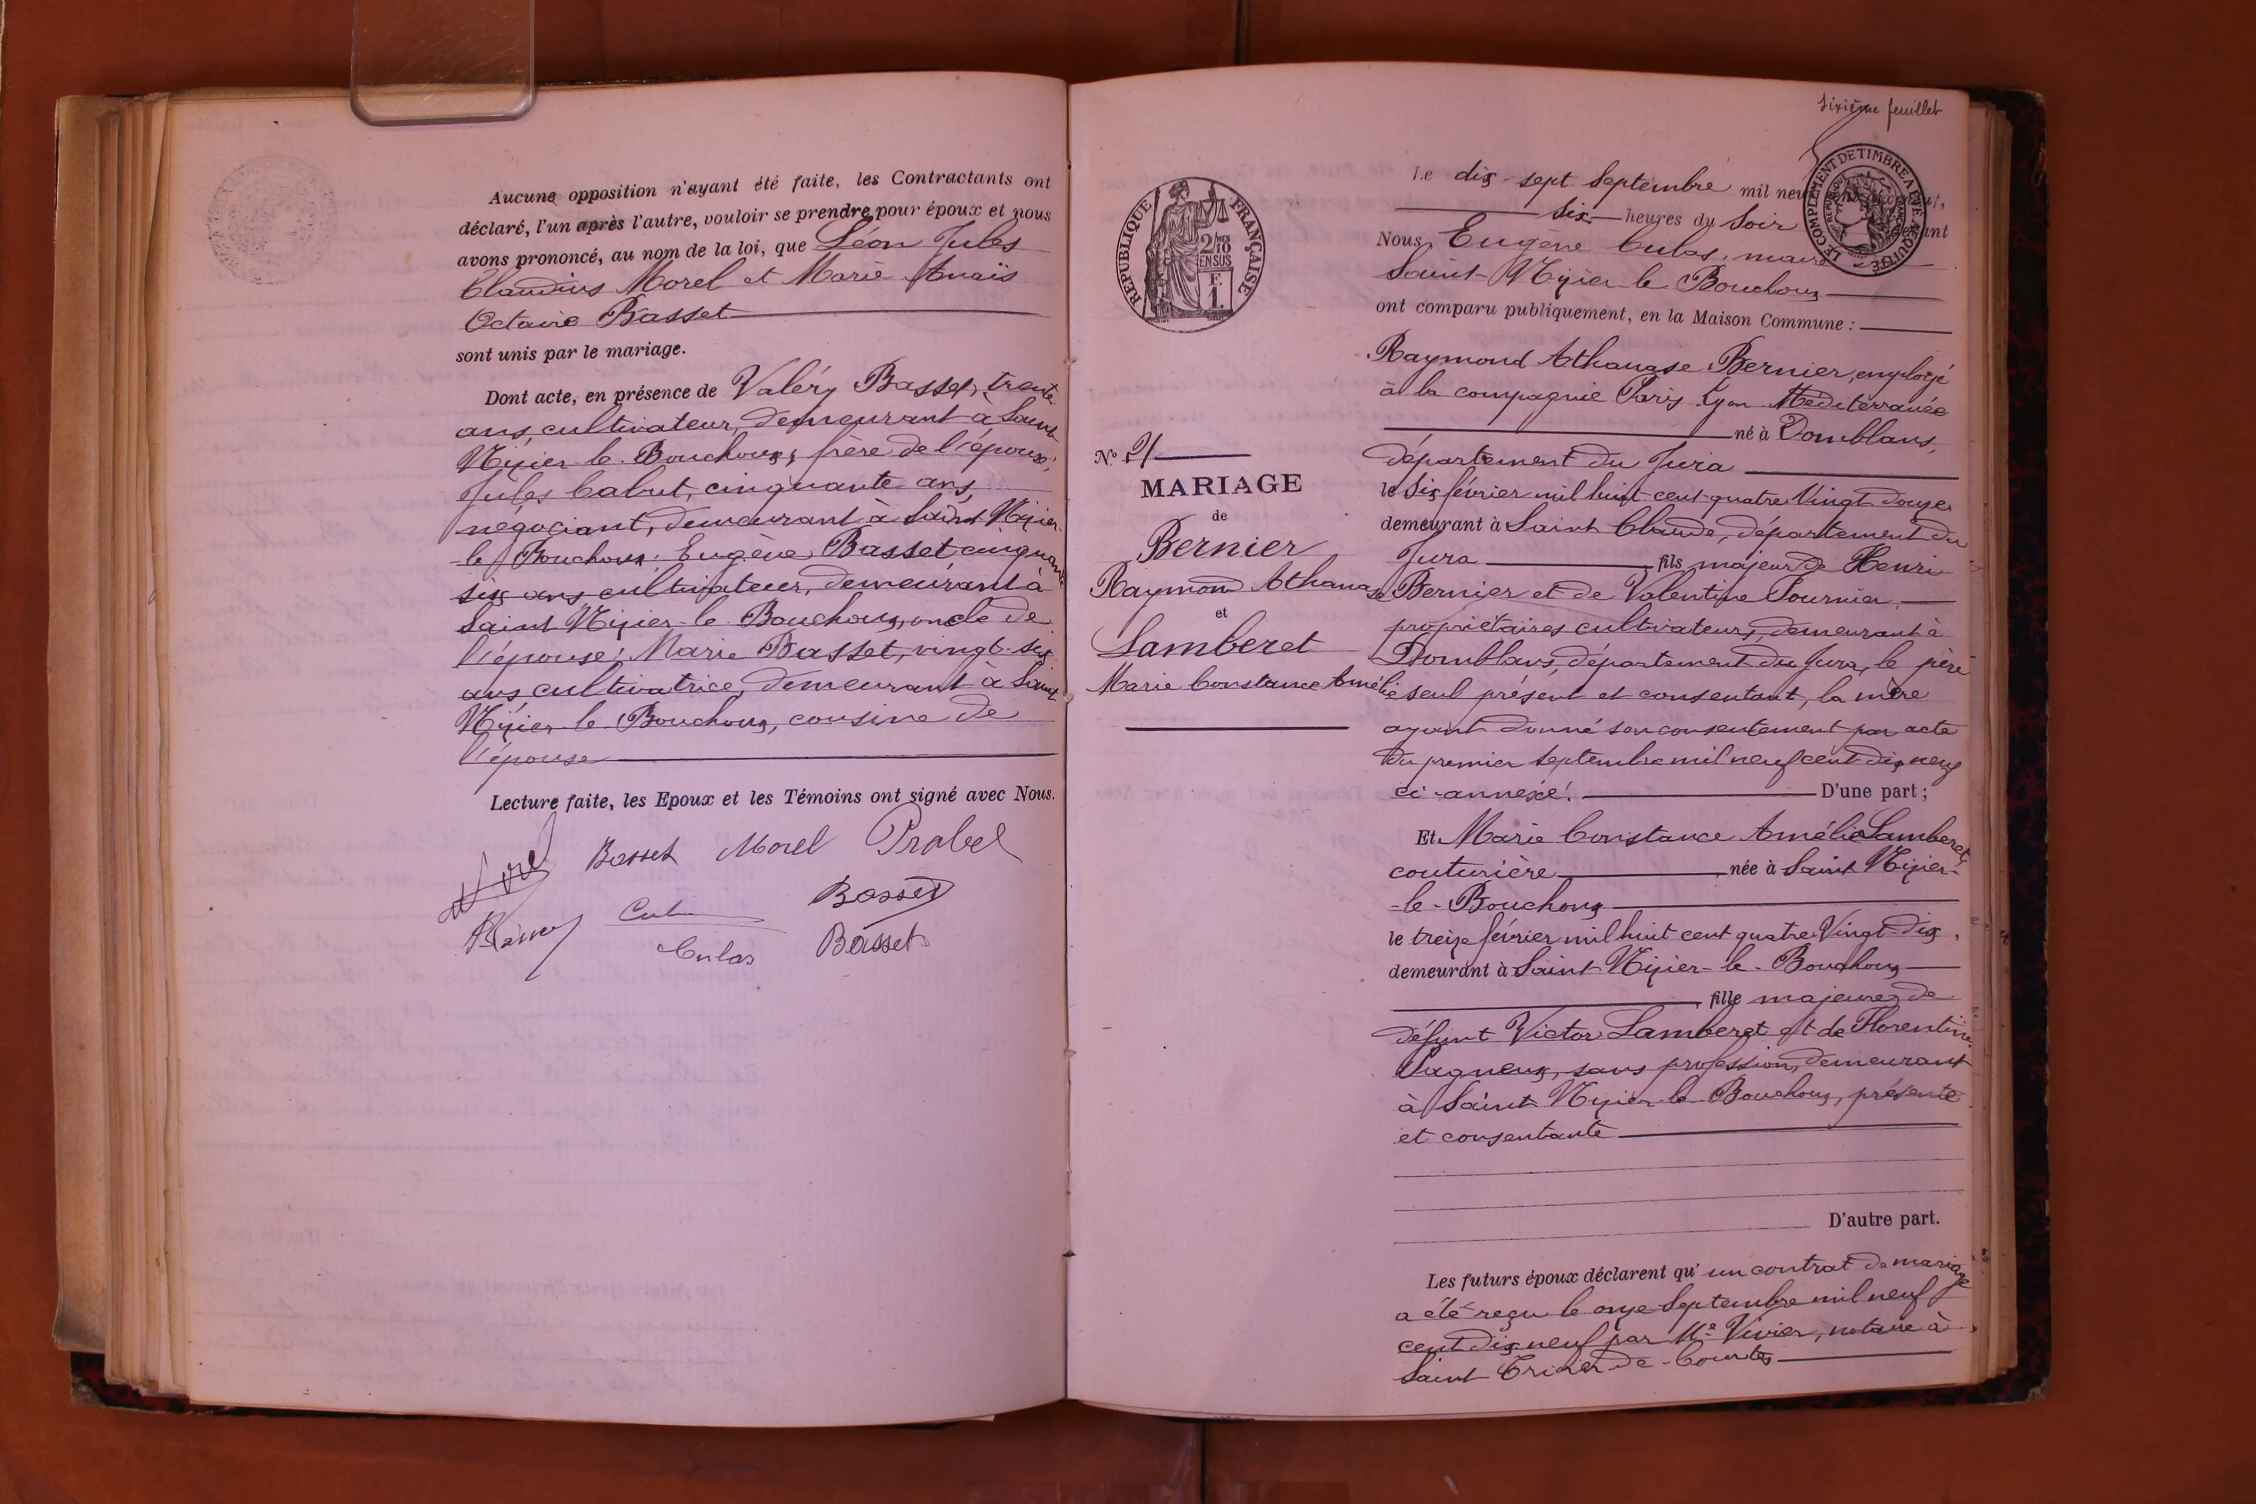 Aucune opposition n'ayant été faite, les Contractants ont
déclaré, l'un après l'autre, vouloir se prendre pour époux et nous
avons prononcé, au nom de la loi, que Léon Jules
Claudius Morel et Marie Anaïs
Octavie Basset
sont unis par le mariage.
Dont acte, en présence de Valéry Basset, trente
ans, cultivateur, demeurant à Saint-
Nizier-le-Bouchoux, frère de l'épouse;
Jules Cabut, cinquante ans,
négociant, demeurant à Saint Nizier-
le Bouchoux; Eugène Basset cinquante
six ans cultivateur, demeurant à
Saint Nizier-le-Bouchoux, oncle de
l'épouse; Marie Basset, vingt-six
ans, cultivatrice, demeurant à Saint
Nizier-le-Bouchoux, cousine de
l'épouse
Lecture faite, les Epoux et les Témoins ont signé avec Nous.
Basset Morel Prabel
Basset
Culas Basset
sixième feuillet
RÉPUBLIQUE FRANÇAISE
2/10 EN SUS
F. 1
LE COMPLEMENT DE TIMBRE A ÉTÉ ACQUITTÉ
Le dix-sept Septembre mil neuf
six heures du Soir
Nous, Eugène Culas, maire
Saint-Nizier-le Bouchoux
ont comparu publiquement, en la Maison Commune :
Raymond Athanase Bernier, employé
à la compagnie Paris Lyon Méditerranée
né à Domblans,
département du Jura
le six février mil huit cent quatre Vingt douze
demeurant à Saint Claude, département du
Jura fils majeur de Henri
Bernier et de Valentine Tournier,
propriétaires cultivateurs, demeurant à
Domblans, département du Jura, le père
seul présent et consentant, la mère
ayant donné son consentement par acte
du premier septembre mil neuf cent dix neuf
ci-annexé. D'une part ;
N° 9
MARIAGE
de
Bernier
Raymond Athanase
et
Lamberet
Marie Constance Amélie
Et Marie Constance Amélie Lamberet,
couturière née à Saint Nizier-
-le-Bouchoux
le treize février mil huit cent quatre Vingt-dix,
demeurant à Saint-Nizier-le-Bouchoux
fille majeure de
défunt Victor Lamberet et de Florentine
Pagneux, sans profession, demeurant
à Saint Nizier-le-Bouchoux, présente
et consentante
D'autre part.
Les futurs époux déclarent qu' un contrat de mariage
a été reçu le onze Septembre mil neuf
cent dix neuf par Me Vivier, notaire à
Saint Trivier-de-Courtes